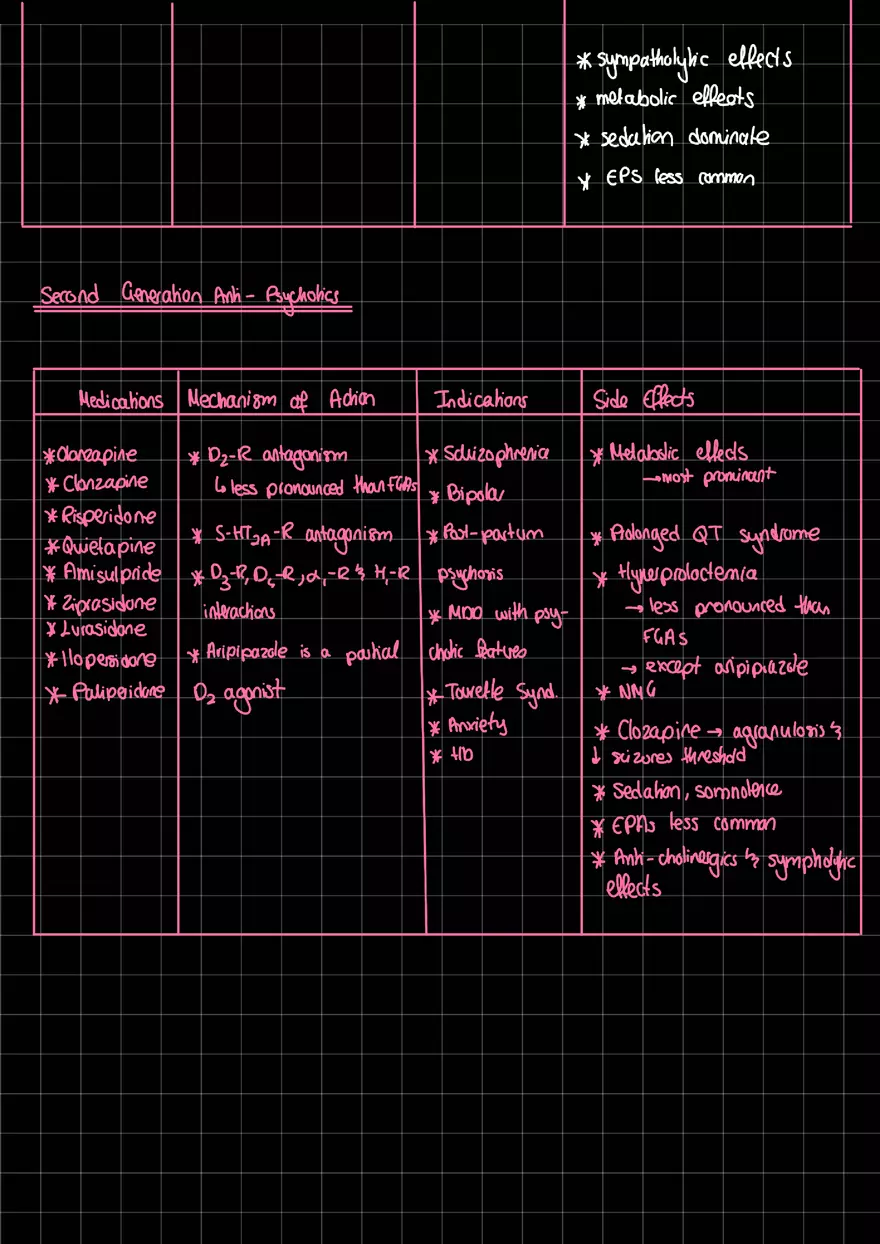 * sympatholytic effects
* metabolic effects
* sedation dominate
* EPS less common
Second Generation Anti-Psychotics
Medications
Mechanism of Action
Indications
Side Effects
* Olanzapine
* Clonzapine
* Risperidone
* Quietapine
* Amisulpride
* Ziprasidone
* Lurasidone
* Iloperidone
* Paliperidone
* D₂-R antagonism
↳ less pronounced than FGAs
* 5-HT₂A-R antagonism
* D₃-R, D₄-R, α₁-R & H₁-R
interactions
* Aripipazole is a partial
D₂ agonist
* Schizophrenia
* Bipolar
* Post-partum
psychosis
* MDD with psy-
chotic features
* Tourette Synd.
* Anxiety
* HD
* Metabolic effects
→ most prominant
* Prolonged QT syndrome
* Hyperprolactemia
→ less pronounced than
FGAs
→ except aripiprazole
* NMG
* Clozapine → agranulosis &
↓ seizures threshold
* Sedation, somnolence
* EPAs less common
* Anti-cholinergics & sympholytic
effects